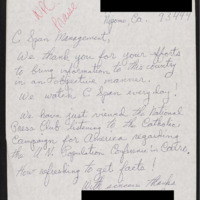 NPC
Praise
Nipomo, Ca. 93444
C Span Management,
We thank you for your efforts
to bring information to the country
in an objective manner.
We watch C Span everyday!
We have just viewed the National
Press Club listening to the Catholic
Campaign for America regarding
the U.N. Population Confrence in Cairo.
How refreshing to get facts!
With sincere thanks